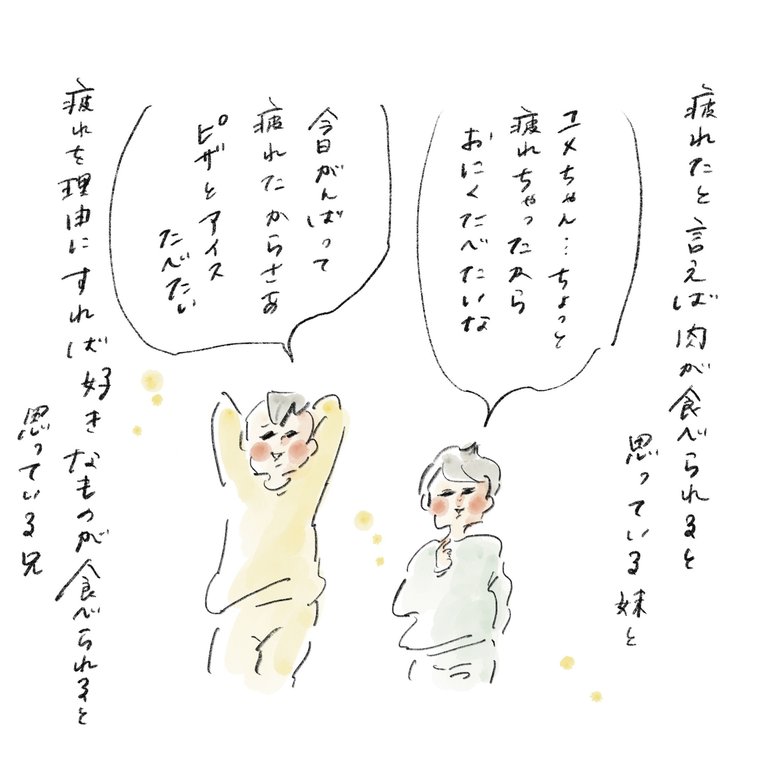 疲れたと言えば肉が食べられると
思っている妹と
ユメちゃん…ちょっと
疲れちゃったから
おにくたべたいな
今日がんばって
疲れたからさあ
ピザとアイス
たべたい
疲れを理由にすれば好きなものが食べられると
思っている兄